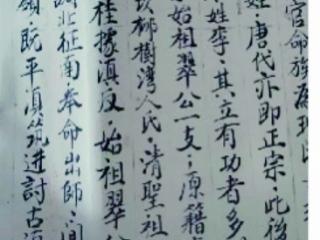 官命族為
姓，唐代亦即正宗，此後
姓李，其立有功者多
始祖翠公一支，原籍
柳樹灣人民，清聖祖
桂據滇反 始祖翠公
北征南奉命出師，間
嶺，既平滇筑进討古